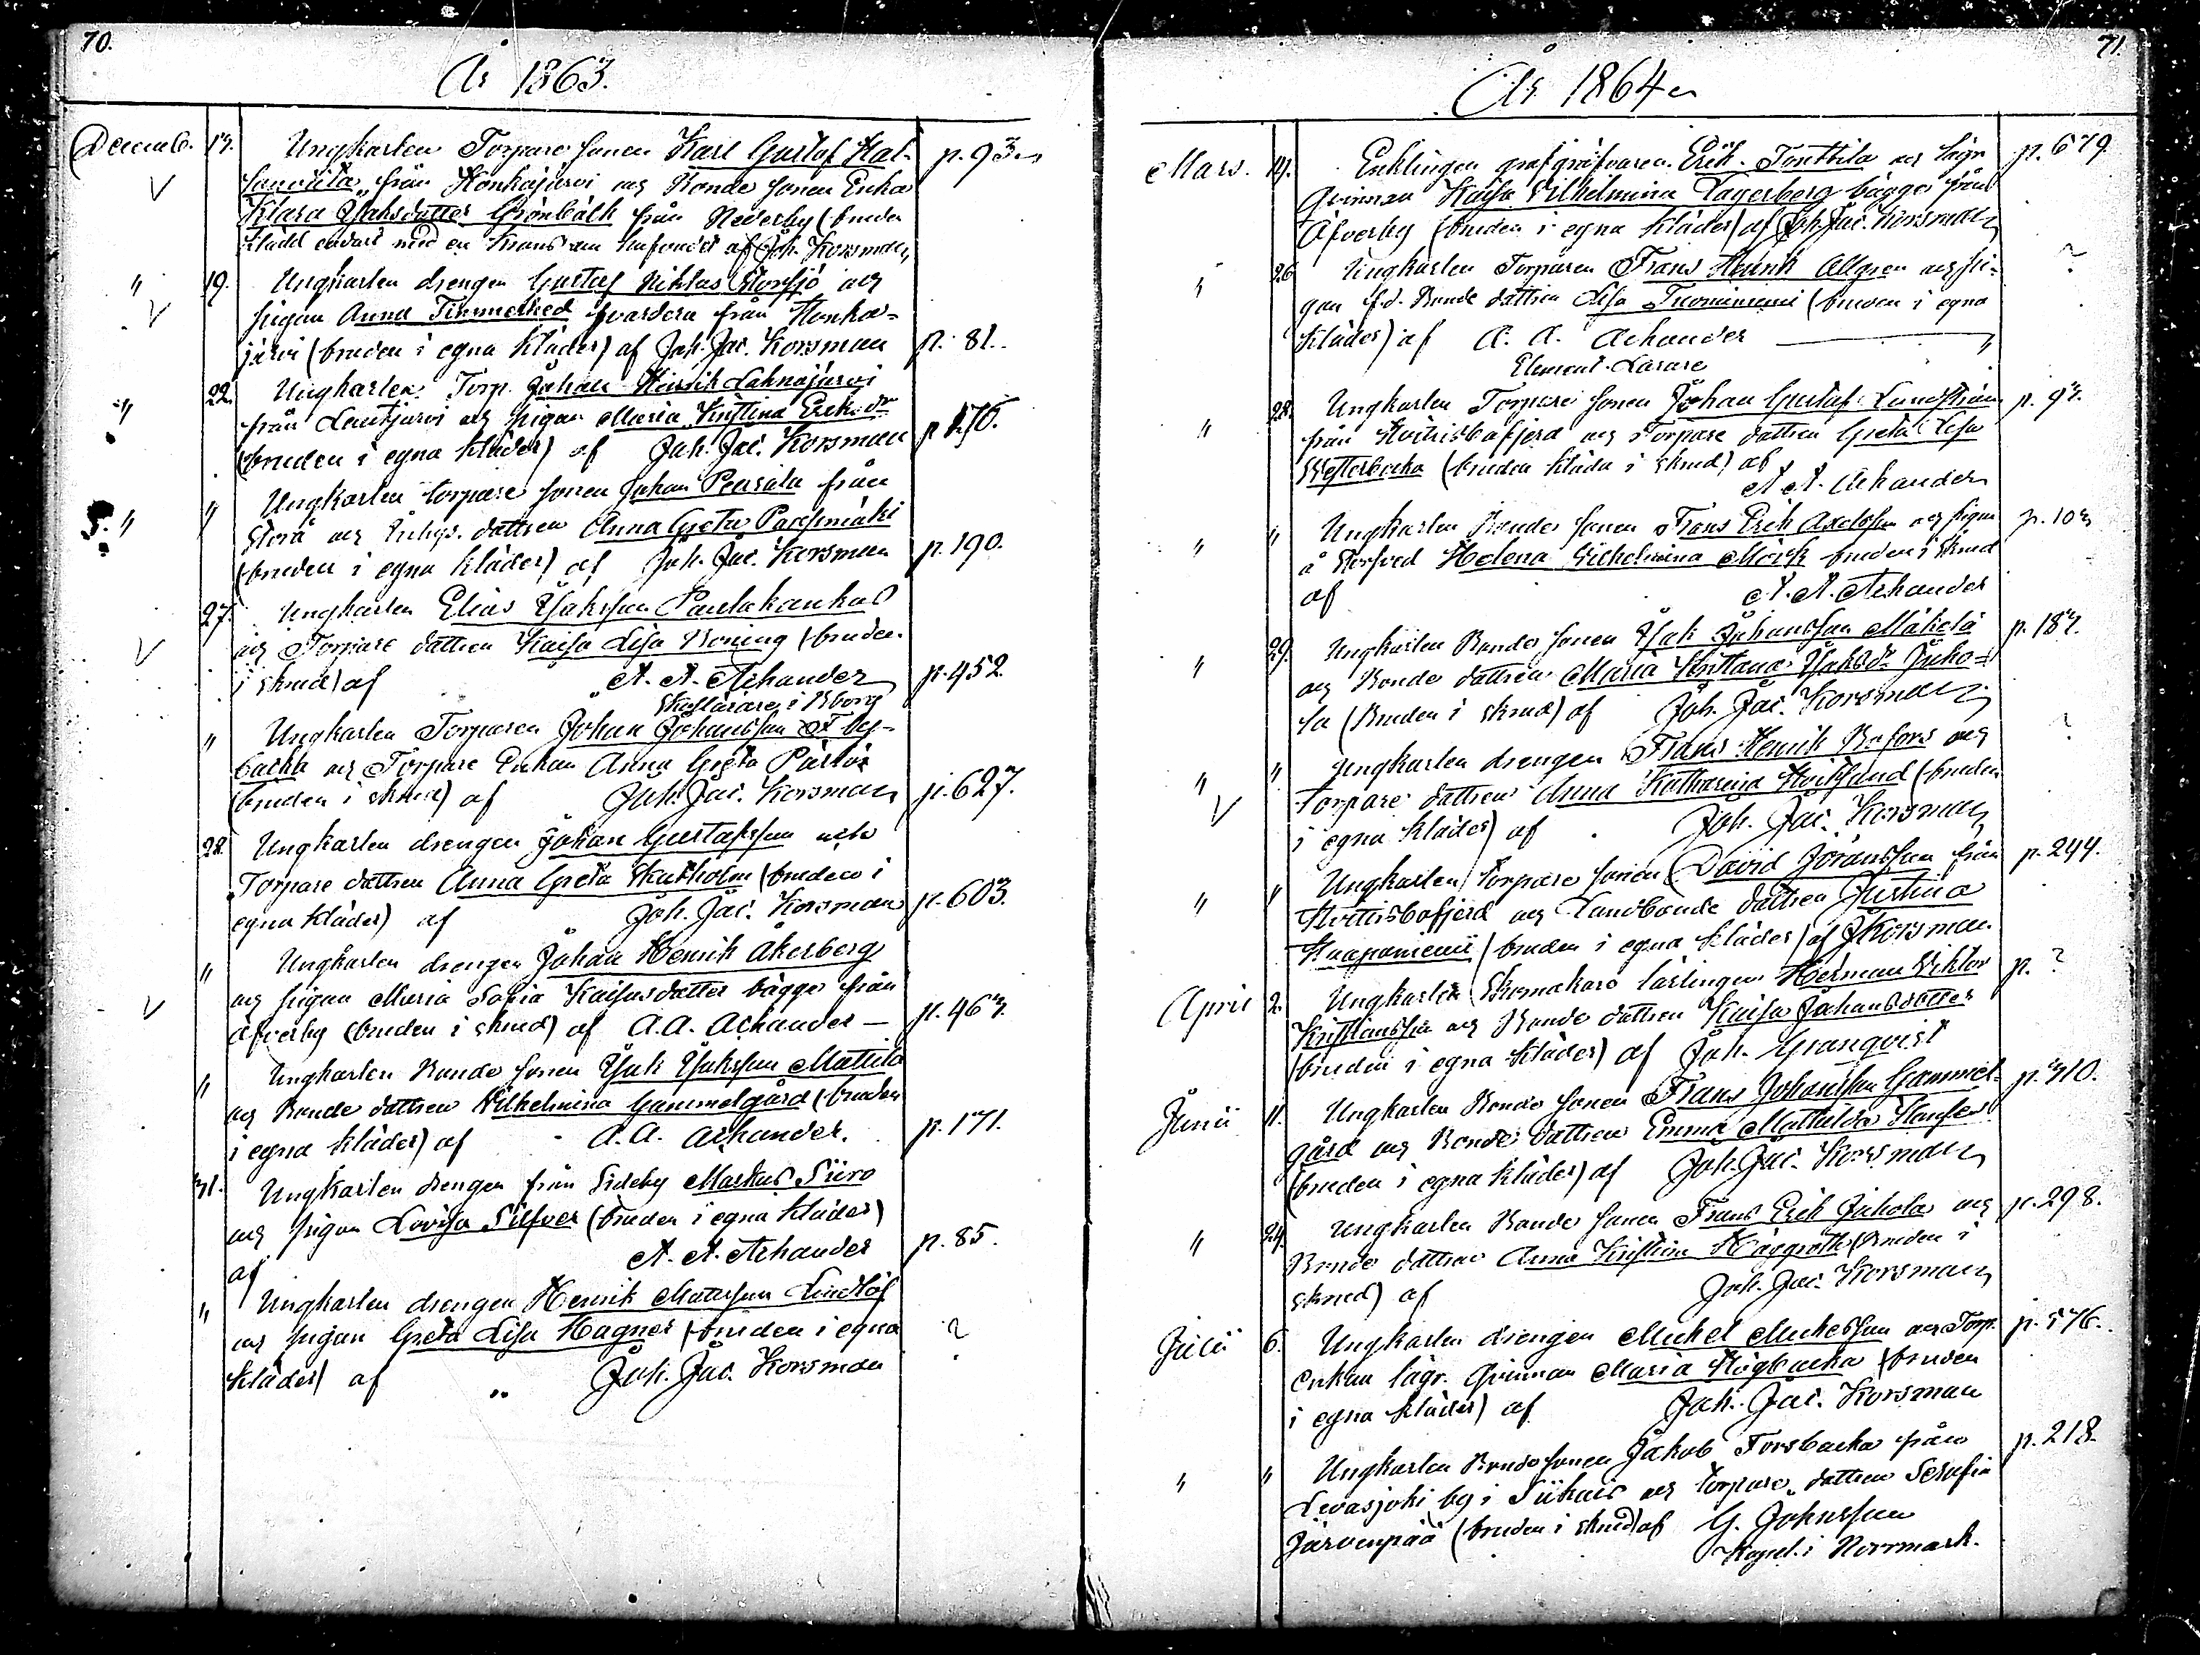 70.
År 1863.
Decemb. 13. Ungkarlen Torpare sonen Karl Gustaf Hal-
p. 93
från Honkajärvi och Bonde sonen Enka
Klara Isaksdotter Grönbäck från Nederby (bruden
klädd endast med en krans om hufvudet af Joh. Korsman
" 19. Ungkarlen drengen Gustaf Niklas Storsjö och
pigan Anna Timmerhed från Honka-
järvi (bruden i egna kläder) af Joh. Jac. Korsman p. 81.
" 22. Ungkarlen Torp. Johan Henrik Lahnajärvi
från och pigan Maria Kristina Eriksdr
(bruden i egna kläder) af Joh. Jac. Korsman p. 176.
" " Ungkarlen torpare sonen Johan Peurala från
Storå och dottren Anna Greta
(bruden i egna kläder) af Joh. Jac. Korsman p. 190.
27. Ungkarlen Elias Isaksson Paulakankas
och Torpare dottren Kaisa Lisa Koning (bruden
i skrud) af A. A. Achander p. 452.
Skollärare i Bborg
" Ungkarlen Torparen Johan Johansson
backa och Torpare Enkan Anna Greta
(bruden i skrud) af Joh. Jac. Korsman p. 627.
28. Ungkarlen drengen Johan Gustafsson och
Torpare dottren Anna Greta Skatholm (bruden i
egna kläder) af Joh. Jac. Korsman p. 603.
" Ungkarlen drengen Johan Henrik Åkerberg
och pigan Maria Sofia Kaisasdotter bägge från
Åfverby (bruden i skrud) af A. A. Achander — p. 463.
" Ungkarlen Bonde sonen Isak Isaksson Mattila
och Bonde dottren Vilhelmina Gammelgård (bruden
i egna kläder) af A. A. Achander. p. 171.
31. Ungkarlen drengen från Sideby Markus Siiro
och pigan Lovisa Silfver (bruden i egna kläder)
af A. A. Achander p. 85.
" Ungkarlen drengen Henrik Mattsson Lindlöf
och pigan Greta Lisa Hagner (bruden i egna ?
kläder) af Joh. Jac. Korsman
71.
År 1864
Mars. 19. Enklingen grafgräfvaren Erik Tonttila och lägr p. 679.
qvinnan Kaisa Vilhelmina Lagerberg bägge från
Åfverby (bruden i egna kläder) af Joh. Jac. Korsman
" 26 Ungkarlen Torparen Frans Henrik Allgren och pi- ?
gan f.d. Bonde dottren Lisa Tuominiemi (bruden i egna
kläder) af A. A. Achander
Element. Lärare
" 28. Ungkarlen Torpare sonen Johan Gustaf Lundström p. 93.
från Hvittisbofjerd och Torpare dottren Greta Lisa
Westerbacka (bruden kläda i skrud) af
A. A. Achander
" " Ungkarlen Bonde sonen Frans Erik Axelsson och pigan p. 103
å Helena Vilhelmina Mörk bruden i skrud
af A. A. Achander
" 29. Ungkarlen Bonde sonen Isak Johansson Mäkelä p. 183.
och Bonde dottren Maria Kristiana Isaksdr Juko-
la (Bruden i skrud) af Joh. Jac. Korsman
" " Ungkarlen drengen Frans Henrik Bofors och ?
torpare dottren Anna Katharina (bruden
i egna kläder) af Joh. Jac. Korsman
" " Ungkarlen torpare sonen David Göransson från p. 244.
Hvittisbofjerd och Landbonde dottren Justina
Haapaniemi (bruden i egna kläder) af J Korsman
April 2. Ungkarlen Skomakare lärlingen Herman Viktor p. ?
Kristiansson och Bonde dottren Kaisa Johansdotter
(bruden i egna kläder) af Joh. Granqvist
Junii 11. Ungkarlen Bonde sonen Frans Johansson Gammel- p. 310.
gård och Bonde dottren Emma Mathilda
(bruden i egna kläder) af Joh. Jac. Korsman
" 24. Ungkarlen Bonde sonen Frans Erik Jukola och p. 298.
Bonde dottren Anna Kristina (Bruden i
skrud) af Joh. Jac. Korsman
Julii 6. Ungkarlen drengen Mickel Mickelsson och Torp. p. 576.
enkan lägr. qvinnan Maria Högbacka (bruden
i egna kläder) af Joh. Jac. Korsman
" " Ungkarlen Bonde sonen Jakob Forsbacka från p. 218.
Levasjoki by i Siikais och torpare dottren Serafia
Järvenpää (bruden i skrud) af G. Johnsson
Kapel. i Norrmark.